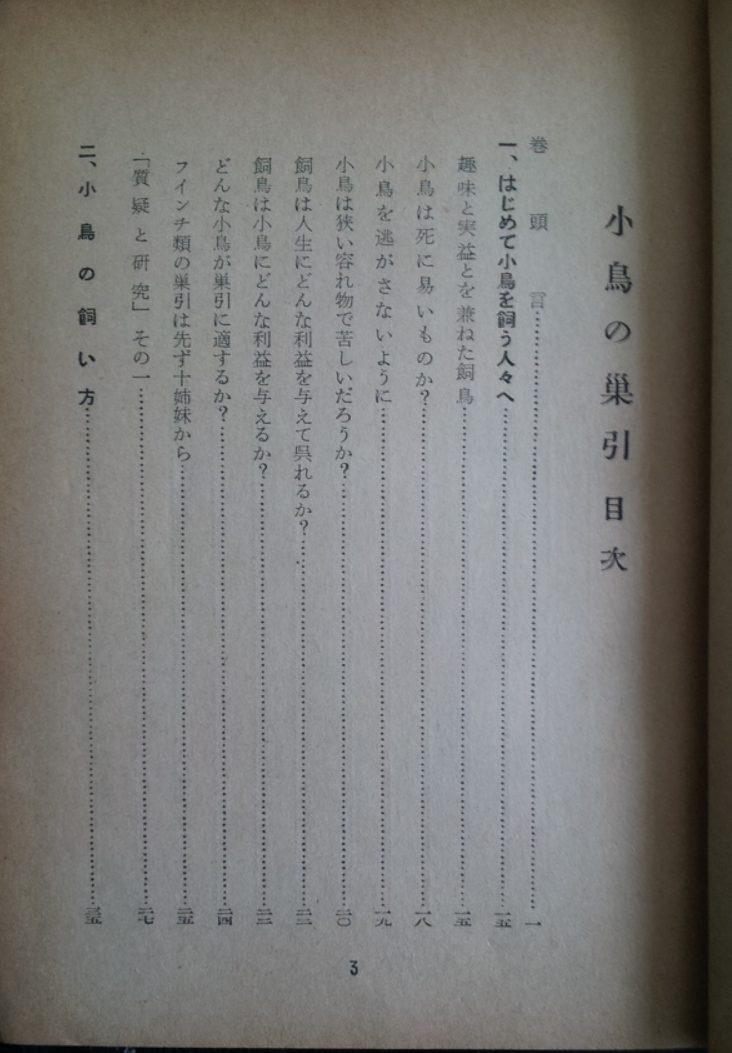 小鳥の巣引 目次
巻頭言……一
一、はじめて小鳥を飼う人々へ……一五
趣味と実益とを兼ねた飼鳥……一五
小鳥は死に易いものか?……一八
小鳥を逃がさないように……一九
小鳥は狭い容れ物で苦しいだろうか?……二〇
飼鳥は人生にどんな利益を与えて呉れるか?……二二
飼鳥は小鳥にどんな利益を与えるか?……二三
どんな小鳥が巣引に適するか?……二四
フインチ類の巣引は先ず十姉妹から……二五
「質疑と研究」その一……二七
二、小鳥の飼い方……三五
3